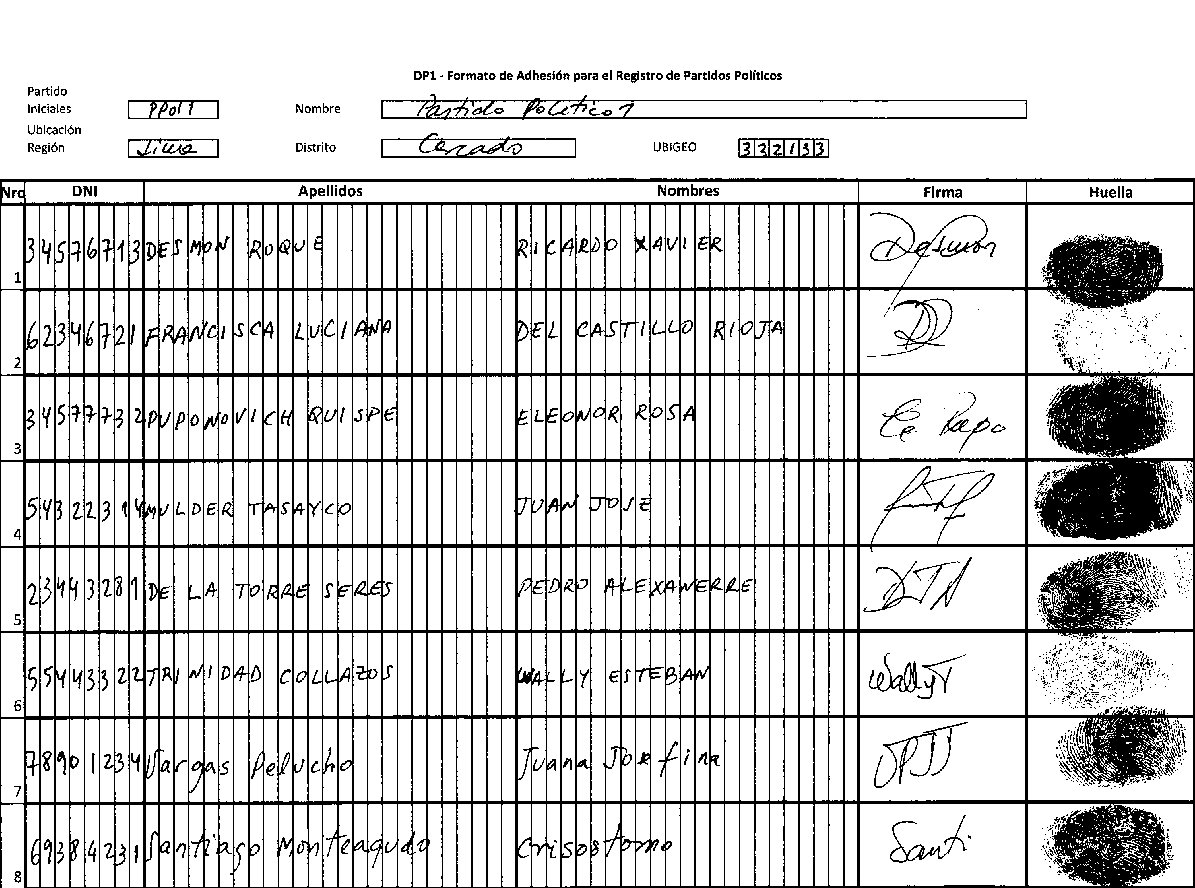 DP1 - Formato de Adhesión para el Registro de Partidos Políticos
Partido
Iniciales PPol1 Nombre Partido Politico 1
Ubicación
Región Lima Distrito Cercado UBIGEO 322133
Nro DNI Apellidos Nombres Firma Huella
1 34576713 DESMON ROQUE RICARDO XAVIER Desmon
2 62346721 FRANCISCA LUCIANA DEL CASTILLO RIOJA
3 34577732 PUPONOVICH QUISPE ELEONOR ROSA
4 54322314 MULDER TASAYCO JUAN JOSE
5 23443281 DE LA TORRE SERES PEDRO ALEXANERRE
6 55443322 TRINIDAD COLLAZOS WALLY ESTEBAN WallyT
7 78901234 Vargas Pelucho Juana Josefina
8 69384231 Santiago Monteagudo Crisostomo Santi